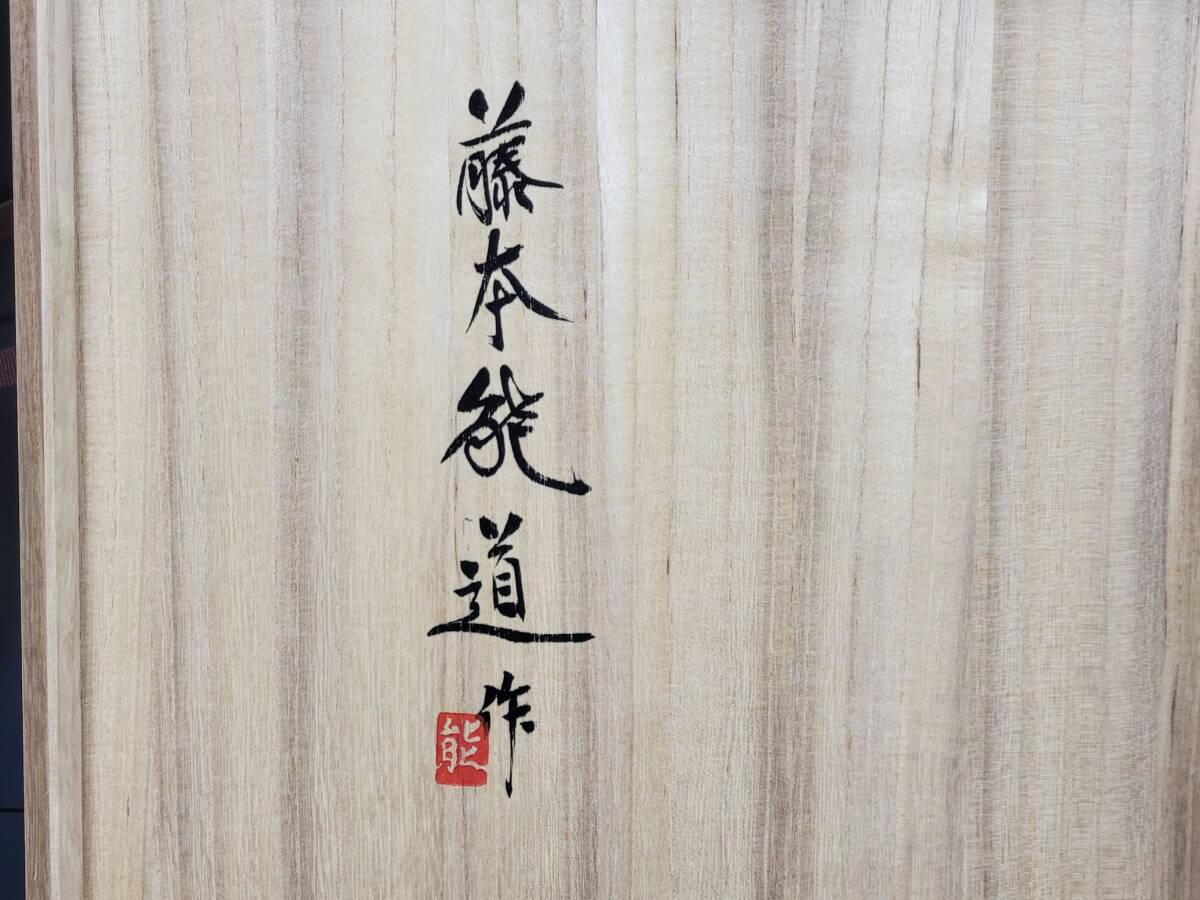 藤本能道作
能